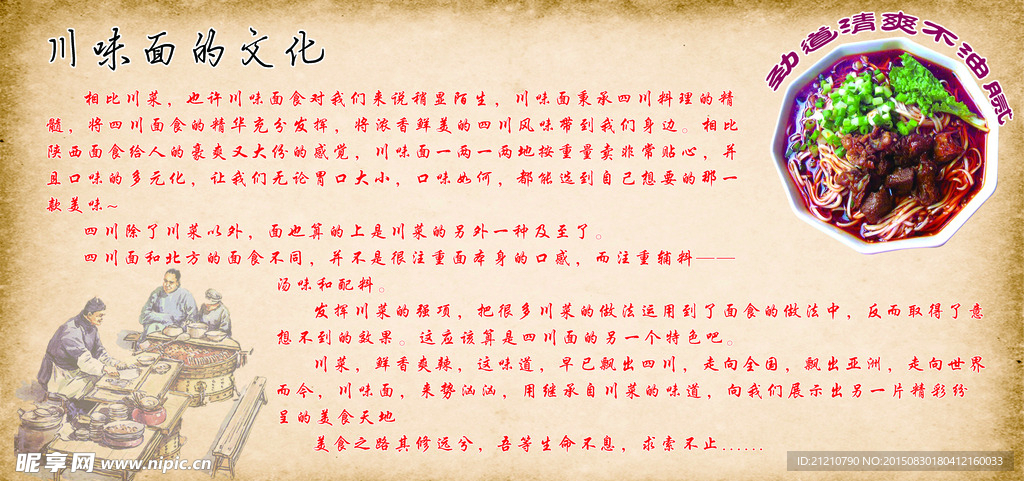 川味面的文化
劲道清爽不油腻
相比川菜，也许川味面食对我们来说稍显陌生，川味面秉承四川料理的精
髓，将四川面食的精华充分发挥，将浓香鲜美的四川风味带到我们身边。相比
陕西面食给人的豪爽又大份的感觉，川味面一两一两地按重量卖非常贴心，并
且口味的多元化，让我们无论胃口大小，口味如何，都能选到自己想要的那一
款美味~
四川除了川菜以外，面也算的上是川菜的另外一种及至了。
四川面和北方的面食不同，并不是很注重面本身的口感，而注重辅料——
汤味和配料。
发挥川菜的强项，把很多川菜的做法运用到了面食的做法中，反而取得了意
想不到的效果。这应该算是四川面的另一个特色吧。
川菜，鲜香爽辣，这味道，早已飘出四川，走向全国，飘出亚洲，走向世界
而今，川味面，来势汹汹，用继承自川菜的味道，向我们展示出另一片精彩纷
呈的美食天地
美食之路其修远兮，吾等生命不息，求索不止......
昵享网 www.nipic.cn
ID:21210790 NO:20150830180412160033